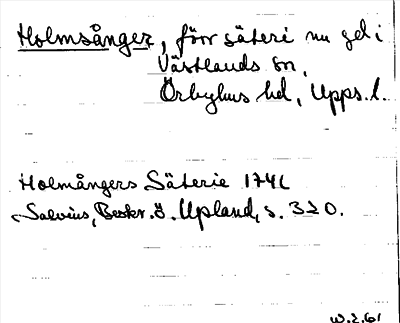 Holmsånger, förr säteri nu gd i
Västlands sn,
Örbyhus hd, Upps. l.
Holmångers Säterie 1741
Salvius, Beskr. ö. Upland, s. 320.
W.Z.61